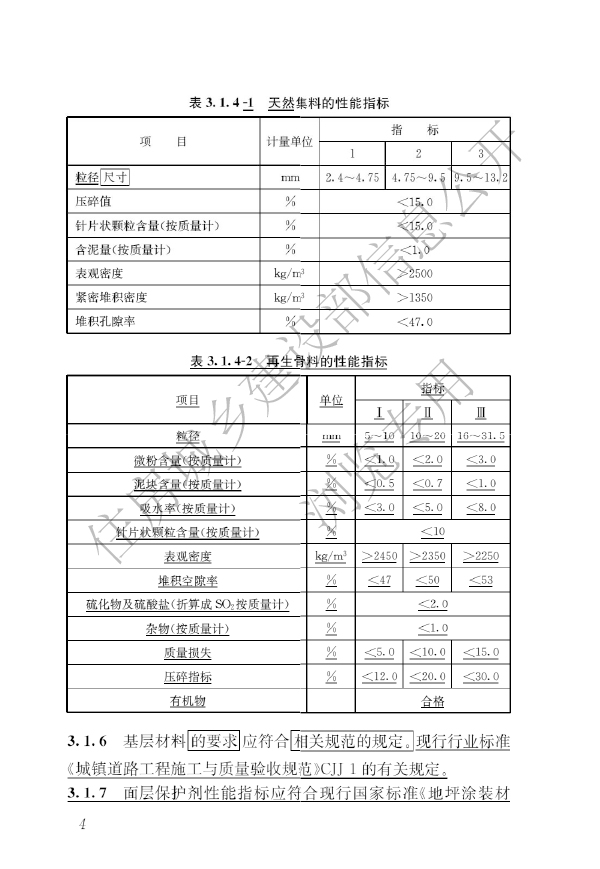 表 3.1.4-1 天然集料的性能指标
项 目 计量单位 指 标
1 2 3
粒径尺寸 mm 2.4～4.75 4.75～9.5 9.5～13.2
压碎值 % <15.0
针片状颗粒含量(按质量计) % <15.0
含泥量(按质量计) % <1.0
表观密度 kg/m³ >2500
紧密堆积密度 kg/m³ >1350
堆积孔隙率 % <47.0
表 3.1.4-2 再生骨料的性能指标
项目 单位 指标
Ⅰ Ⅱ Ⅲ
粒径 mm 5～10 10～20 16～31.5
微粉含量(按质量计) % <1.0 <2.0 <3.0
泥块含量(按质量计) % <0.5 <0.7 <1.0
吸水率(按质量计) % <3.0 <5.0 <8.0
针片状颗粒含量(按质量计) % <10
表观密度 kg/m³ >2450 >2350 >2250
堆积空隙率 % <47 <50 <53
硫化物及硫酸盐(折算成 SO₂按质量计) % <2.0
杂物(按质量计) % <1.0
质量损失 % <5.0 <10.0 <15.0
压碎指标 % <12.0 <20.0 <30.0
有机物 合格
3.1.6 基层材料的要求应符合相关规范的规定。现行行业标准
《城镇道路工程施工与质量验收规范》CJJ 1 的有关规定。
3.1.7 面层保护剂性能指标应符合现行国家标准《地坪涂装材
4
住房城乡建设部信息公开
浏览专用